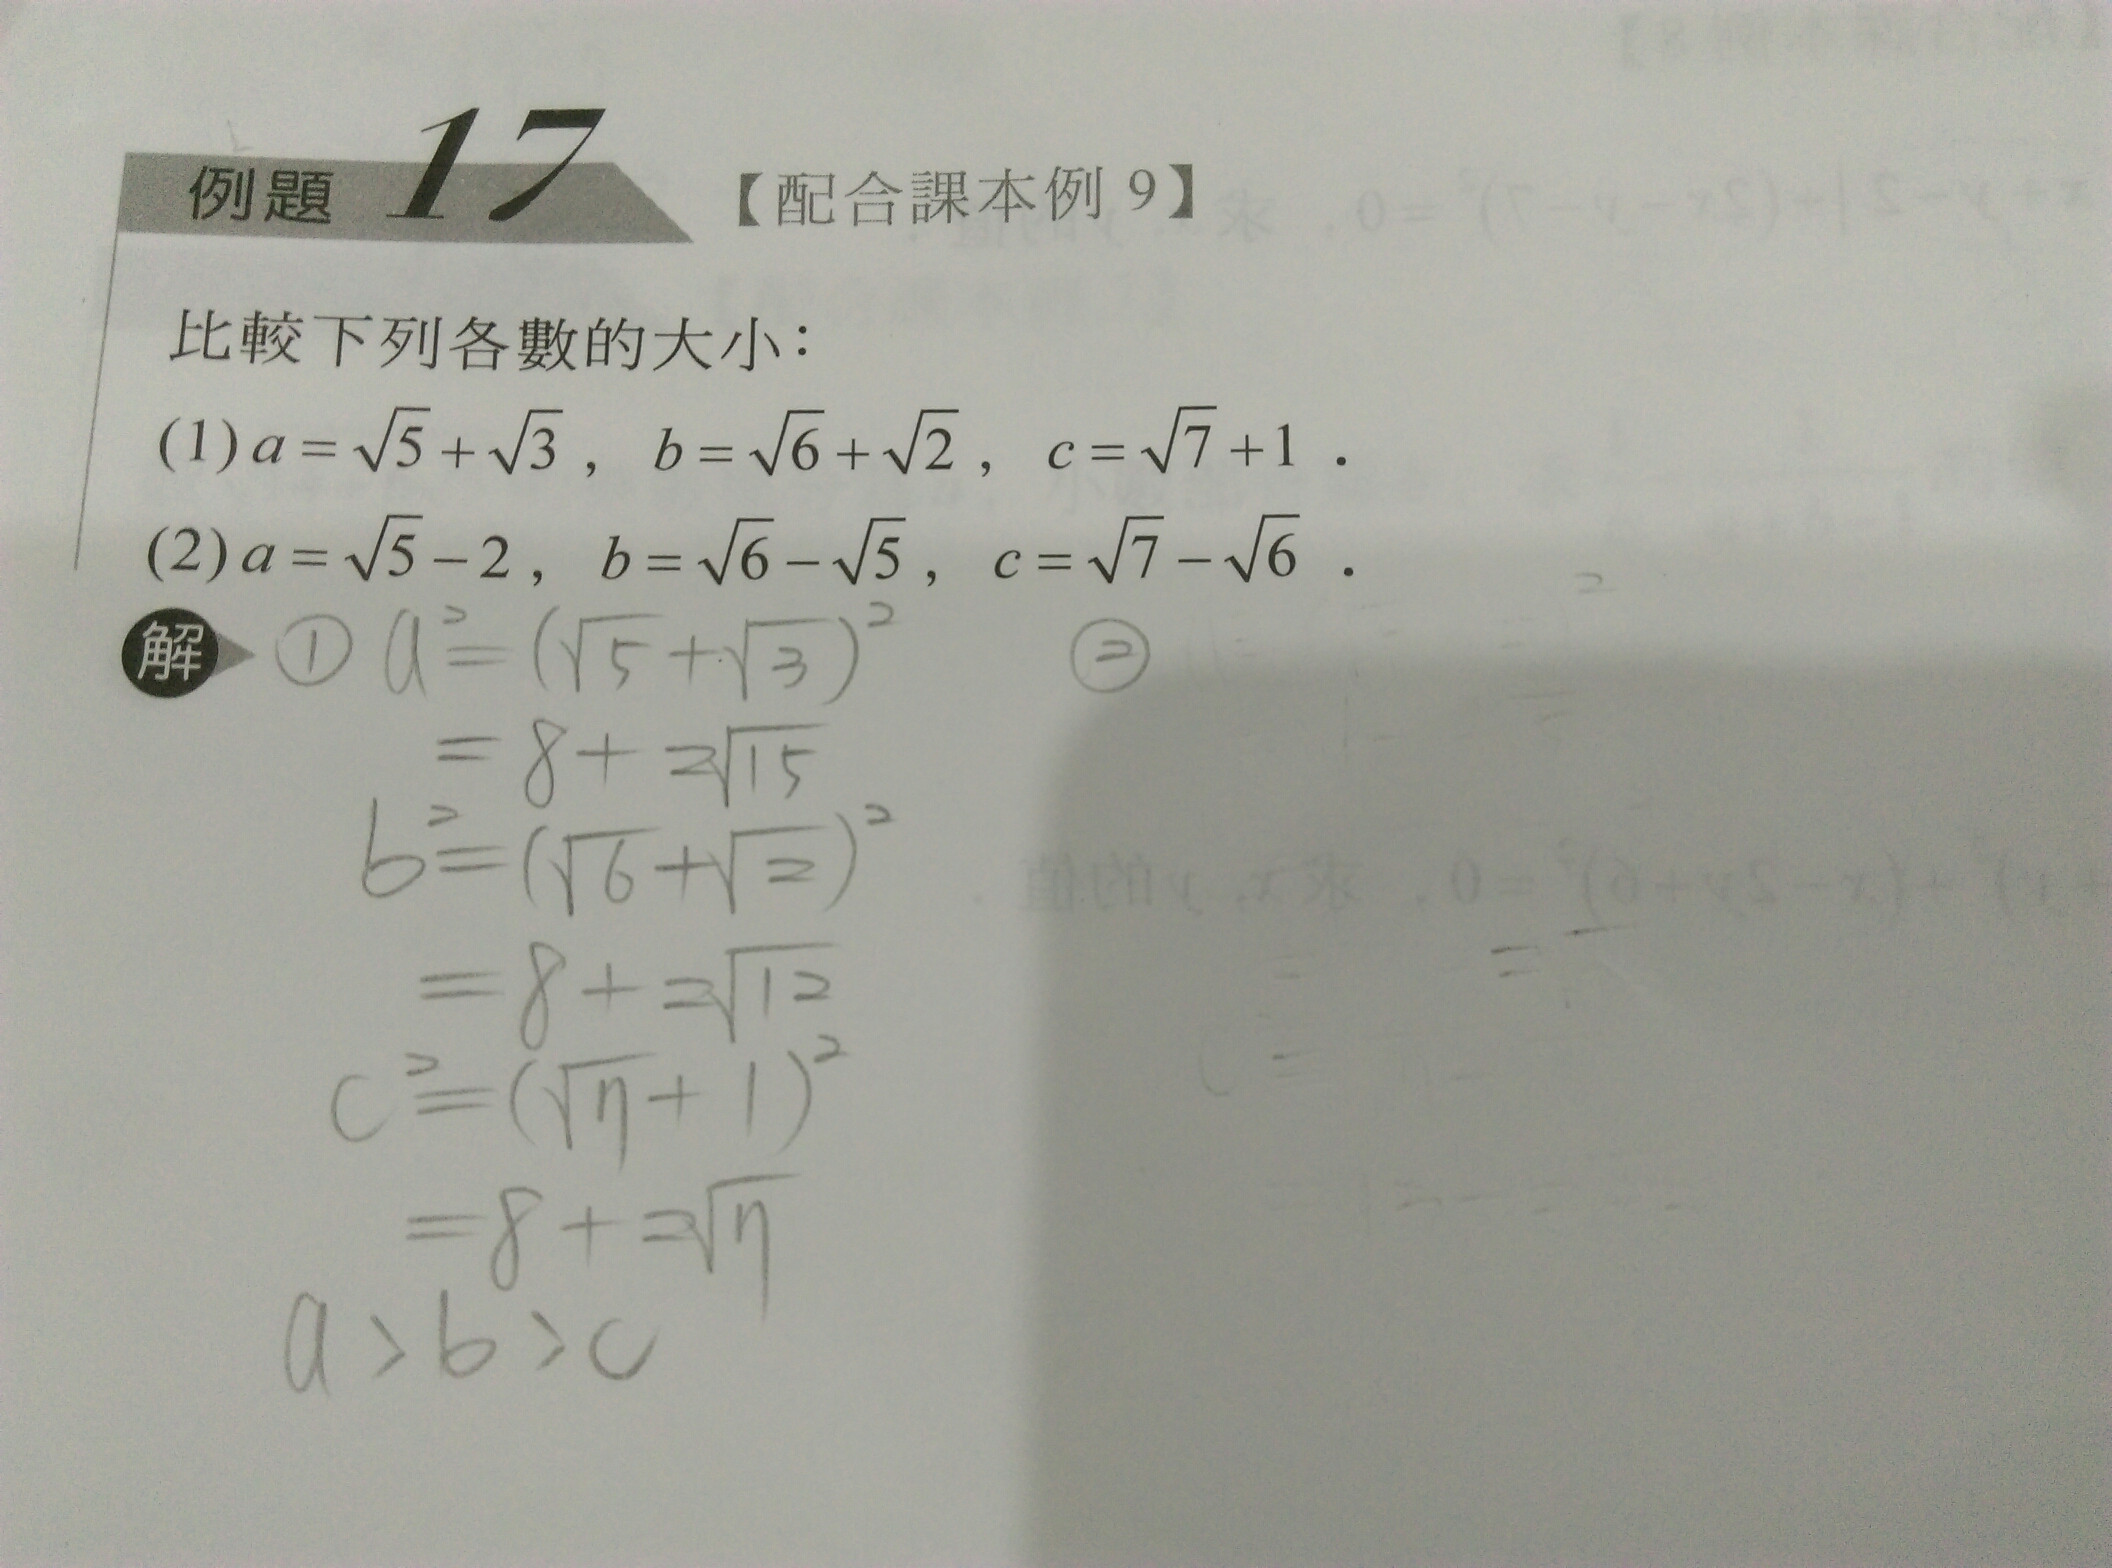 例題 17 【配合課本例 9】
比較下列各數的大小：
(1) a = √5 + √3 , b = √6 + √2 , c = √7 + 1 .
(2) a = √5 − 2 , b = √6 − √5 , c = √7 − √6 .
解 ① a² = (√5 + √3)² ②
= 8 + 2√15
b² = (√6 + √2)²
= 8 + 2√12
c² = (√7 + 1)²
= 8 + 2√7
a > b > c